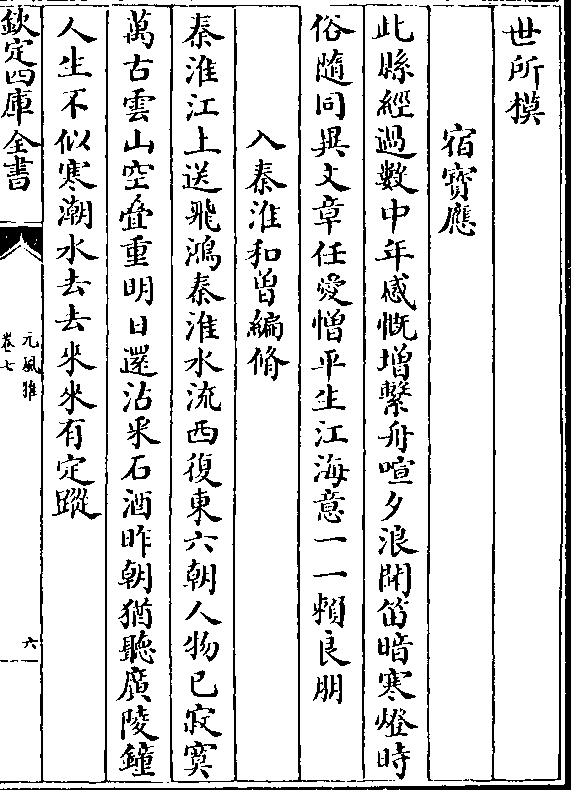 世所摸
宿寳應
此縣經過數中年感慨增繫舟喧夕浪開笛暗寒燈時
俗隨同異文章任愛憎平生江海意一一賴良朋
入秦淮和曾編脩
秦淮江上送飛鴻秦淮水流西復東六朝人物已寂寞
萬古雲山空疊重明日還沽采石酒昨朝猶聽廣陵鐘
人生不似寒潮水去去來來有定蹤
欽定四庫全書
元風雅
卷七
六